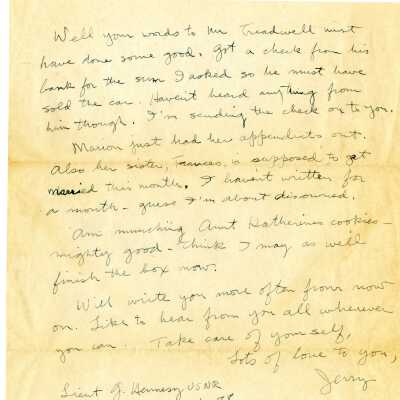 Well your words to Mr Treadwell must
have done some good. Got a check from his
bank for the sum I asked so he must have
sold the car. Haven't heard anything from
him though. I'm sending the check on to you.
Marion just had her appendix out.
Also her sister, Frances, is supposed to get
married this month. I haven't written for
a month - guess I'm about disowned.
Am munching Aunt Katherine's cookies -
mighty good - think I may as well
finish the box now.
Will write you more often from now
on. Like to hear from you all whenever
you can. Take care of yourself,
Lots of love to you,
Jerry
Lieut J. Hennessy USNR